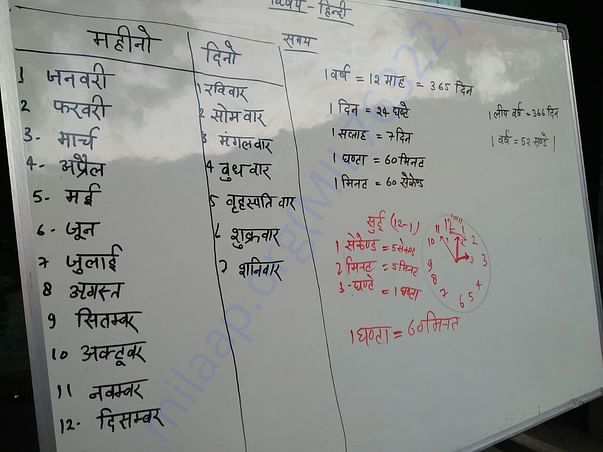 विषय - हिन्दी
महीनो
1 जनवरी
2 फरवरी
3- मार्च
4- अप्रैल
5- मई
6- जून
7 जुलाई
8 अगस्त
9 सितम्बर
10 अक्टूबर
11 नवम्बर
12- दिसम्बर
दिनो
1 रविवार
2 सोमवार
3 मंगलवार
4 बुधवार
5 वृहस्पतिवार
6 शुक्रवार
7 शनिवार
समय
1 वर्ष = 12 माह = 365 दिन
1 दिन = 24 घण्टे
1 सप्ताह = 7 दिन
1 घण्टा = 60 मिनट
1 मिनट = 60 सैकेण्ड
1 लीप वर्ष = 366 दिन
1 वर्ष = 52
सुई (12-1)
1 सेकेण्ड = 5
2 मिनट = 5 मिनट
3- घण्टे = 1 घण्टा
12 1 2 3 4 5 6 7 8 9 10 11
1 घण्टा = 60 मिनट
milaap.org